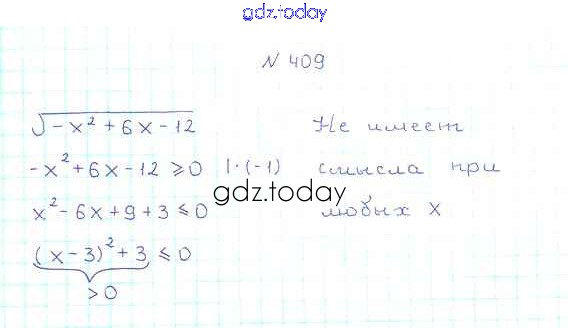 gdz.today
N 409
√-x² + 6x - 12 Не имеет
-x² + 6x - 12 ⩾ 0 | · (-1) смысла при
gdz.today
x² - 6x + 9 + 3 ⩽ 0 любых x
(x - 3)² + 3 ⩽ 0
> 0